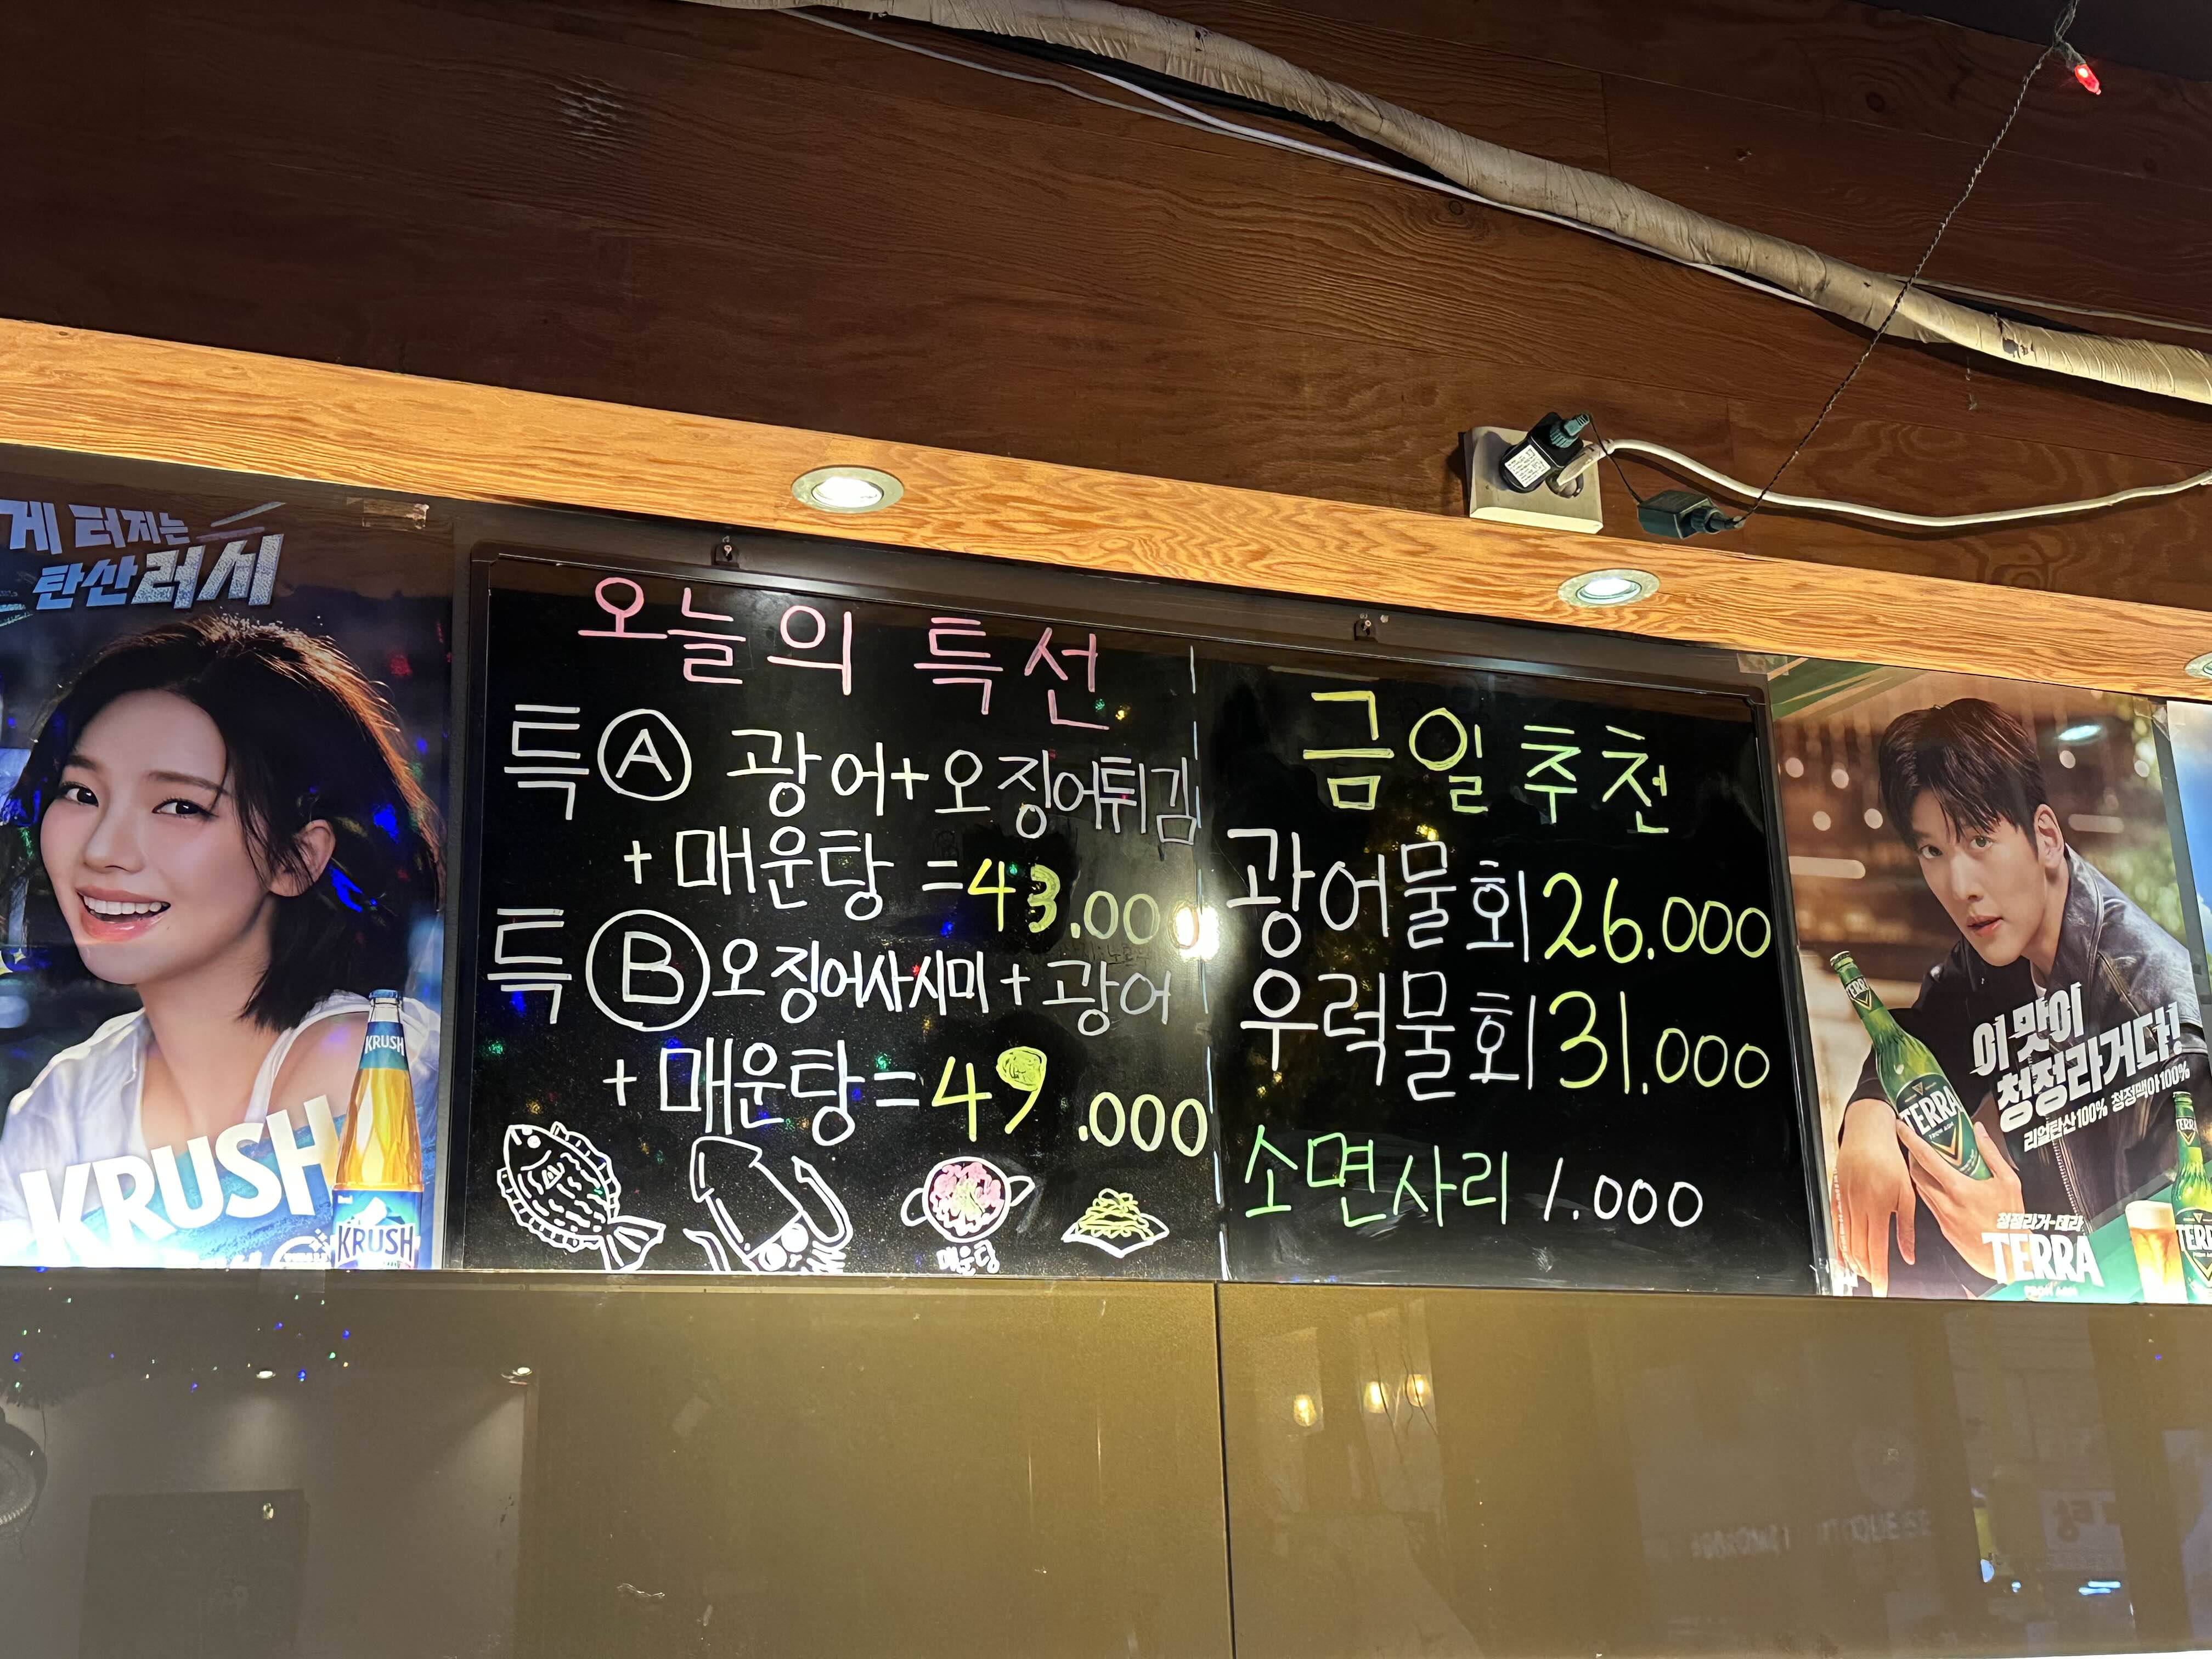 게 터지는
탄산러시
KRUSH
KRUSH
KRUSH
오늘의 특선
특 Ⓐ 광어+오징어튀김
+ 매운탕 =43.000
특 Ⓑ 오징어사시미 + 광어
+ 매운탕=49.000
매운탕
금일추천
광어물회 26.000
우럭물회 31.000
소면사리 1.000
TERRA
TERRA
이 맛이
청정라거다!
리얼탄산100% 청정맥아100%
청정라거-테라
TERRA
TERR
TERR